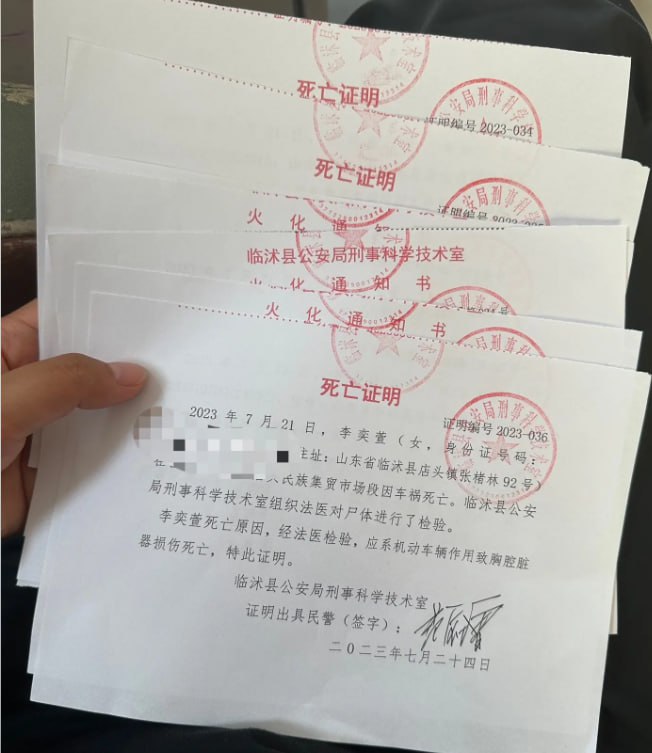 死亡证明
证明编号 2023-034
死亡证明
证明编号
火 化 通 知
临沭县公安局刑事科学技术室
火 化 通 知 书
火 化 通 知 书
死亡证明
证明编号 2023-036
2023 年 7 月 21 日，李奕萱（女，身份证号码：
住址：山东省临沭县店头镇张楮林 92 号）
民族集贸市场段因车祸死亡。临沭县公安
局刑事科学技术室组织法医对尸体进行了检验。
李奕萱死亡原因，经法医检验，应系机动车辆作用致胸腔脏
器损伤死亡，特此证明。
临沭县公安局刑事科学技术室
证明出具民警（签字）：
二〇二三年七月二十四日